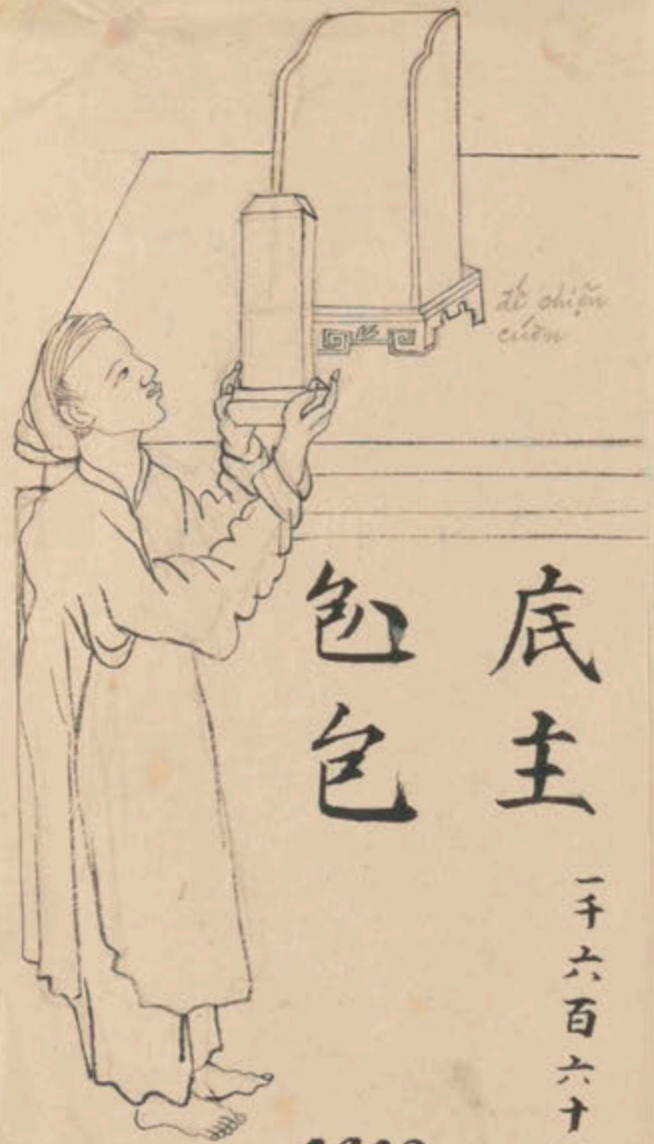 đế chiện
cuốn
底主
包
一千六百六十